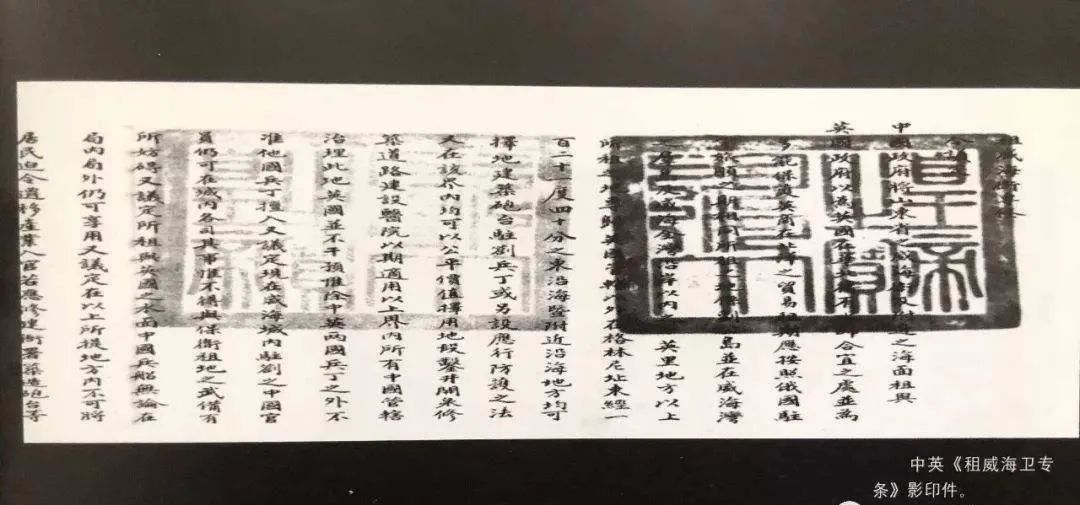 租威海衛專條
今議定
中國政府將山東省之威海衛及附近之海面租與
英國政府以為英國在華北得有水師合宜之處並為
多能保護英商在北洋之貿易租期應按照俄國駐
守旅順之期相同所租之地係劉公島並在威海灣
之羣島及威海全灣沿岸以內之十英里地方以上
所租之地專歸英國管轄以外在格林尼址東經一
百二十一度四十分之東沿海暨附近沿海地方均可
擇地建築砲台駐劄兵丁或另設應行防護之法
又在該界內均可以公平價值擇用地段鑿井開泉修
築道路建設醫院以期適用以上界內所有中國管轄
治理此地英國並不干預惟除中英兩國兵丁之外不
准他國兵丁擅入又議定現在威海城內駐劄之中國官
員仍可在城內各司其事惟不得與保衛租地之武備有
所妨碍又議定所租與英國之水面中國兵船無論在
局內局外仍可享用又議定在以上所提地方內不可將
居民迫令遷移產業入官若應修建衙署築造砲台等
皇帝之寶
中英《租威海卫专
条》影印件。